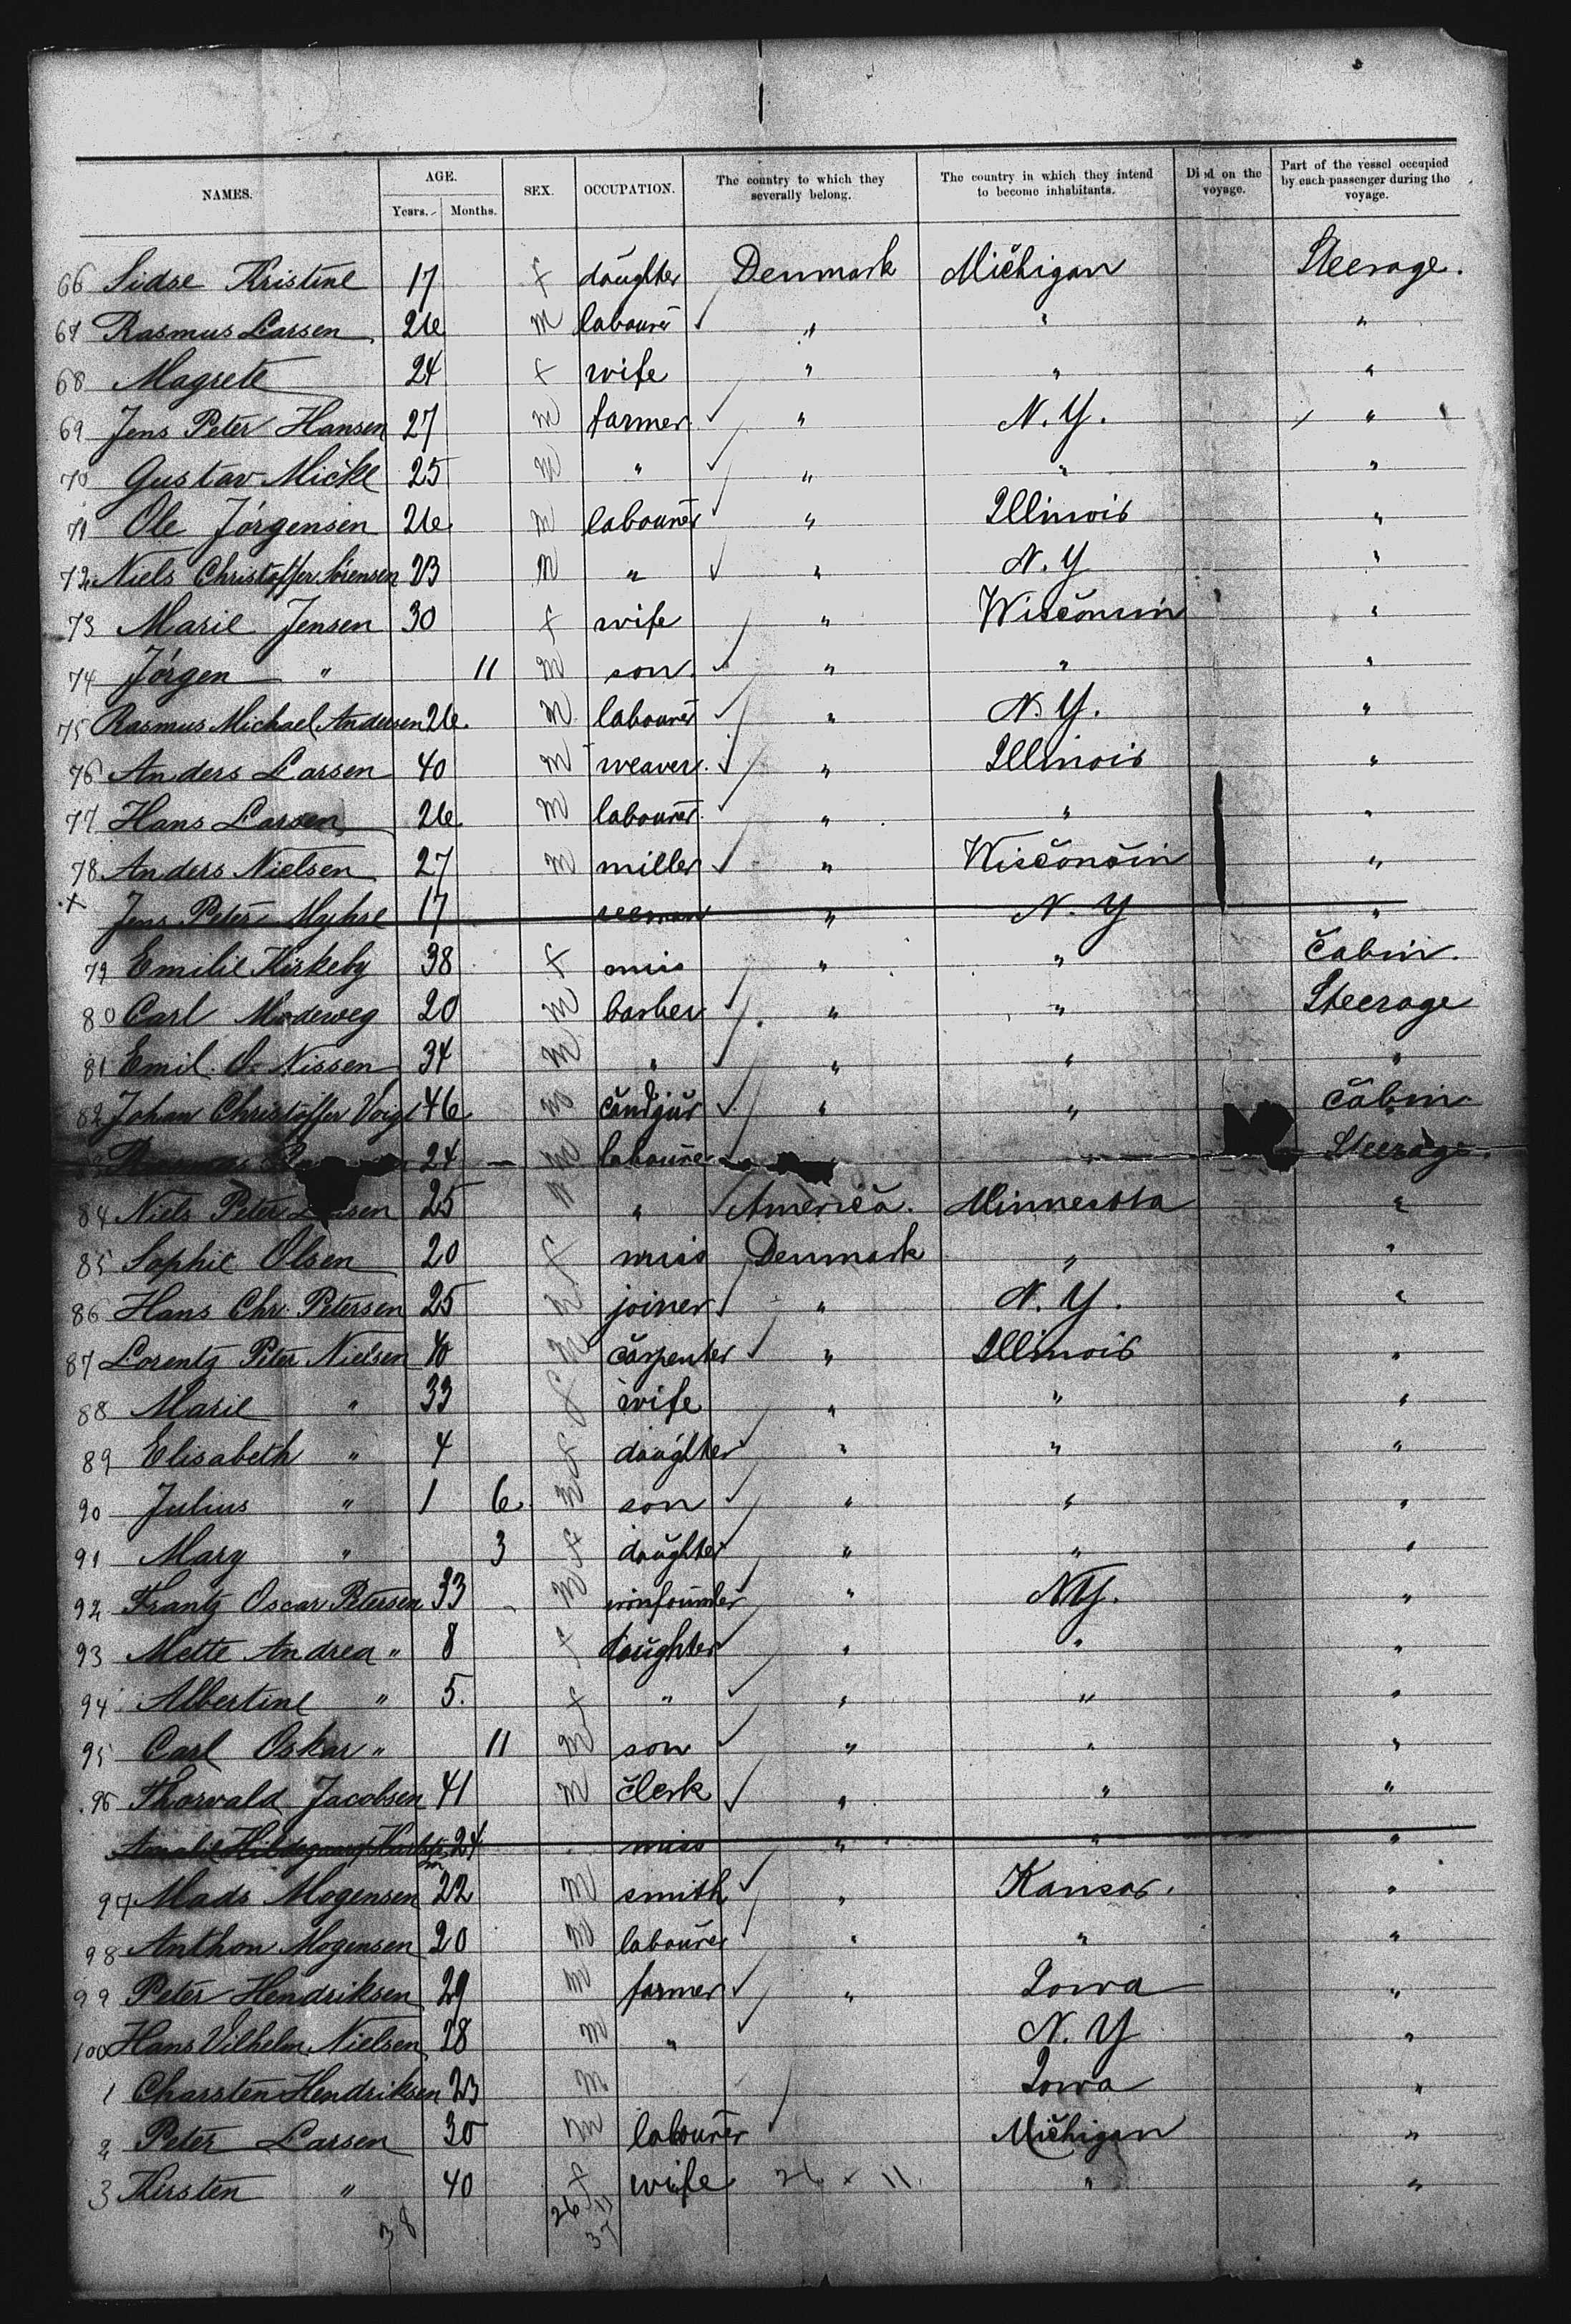 NAMES. AGE. SEX. OCCUPATION. The country to which they severally belong. The country in which they intend to become inhabitants. Died on the voyage. Part of the vessel occupied by each passenger during the voyage.
Years. Months.
66 Sidse Kristine 17 f daughter Denmark Michigan Steerage.
67 Rasmus Larsen 26 m labourer " " "
68 Magrete 24 f wife " " "
69 Jens Peter Hansen 27 m farmer " N. Y. "
70 Gustav Mickl 25 m " " " "
71 Ole Jörgensen 26 m labourer " Illinois "
72 Niels Christoffer Sörensen 23 m " " N. Y "
73 Marie Jensen 30 f wife " Wisconsin "
74 Jörgen " 11 m son " " "
75 Rasmus Michael Andersen 26 m labourer " N. Y. "
76 Anders Larsen 40 m weaver " Illinois "
77 Hans Larsen 26 m labourer " " "
78 Anders Nielsen 27 m miller " Wisconsin "
x Jens Peter Myhre 17 seeman " N. Y "
79 Emilie Kirkeby 38 f mis " " Cabin.
80 Carl Modeweg 20 m barber " " Steerage
81 Emil O. Nissen 34 m " " " "
82 Johan Christoffer Voigt 46 m " " Cabin
24 m labourer " Steerage.
84 Niels Peter 25 m " America. Minnesota "
85 Sophie Olsen 20 f miss Denmark " "
86 Hans Chr. Petersen 25 m joiner " N. Y. "
87 Lorentz Peter Nielsen 40 m carpenter " Illinois "
88 Marie " 33 f wife " " "
89 Elisabeth " 4 f daughter " " "
90 Julius " 1 6 m son " " "
91 Mary " 3 f daughter " " "
92 Frantz Oscar Petersen 33 m ironfounder " N.Y. "
93 Mette Andrea " 8 f daughter " " "
94 Albertine " 5. f " " " "
95 Carl Oskar " 11 m son " " "
96 Thorvald Jacobsen 41 m clerk " " "
Amalie 24 miss " " "
97 Mads Mogensen 22 m smith " Kansas. "
98 Anthon Mogensen 20 m labourer " " "
99 Peter Hendriksen 29 m farmer " Iowa "
100 Hans Vilhelm Nielsen 28 m " N. Y "
1 Charsten Hendriksen 23 m Iowa "
2 Peter Larsen 30 m labourer Michigan "
3 Kirsten " 40 f wife 26 x 11. " "
38 26 11
37